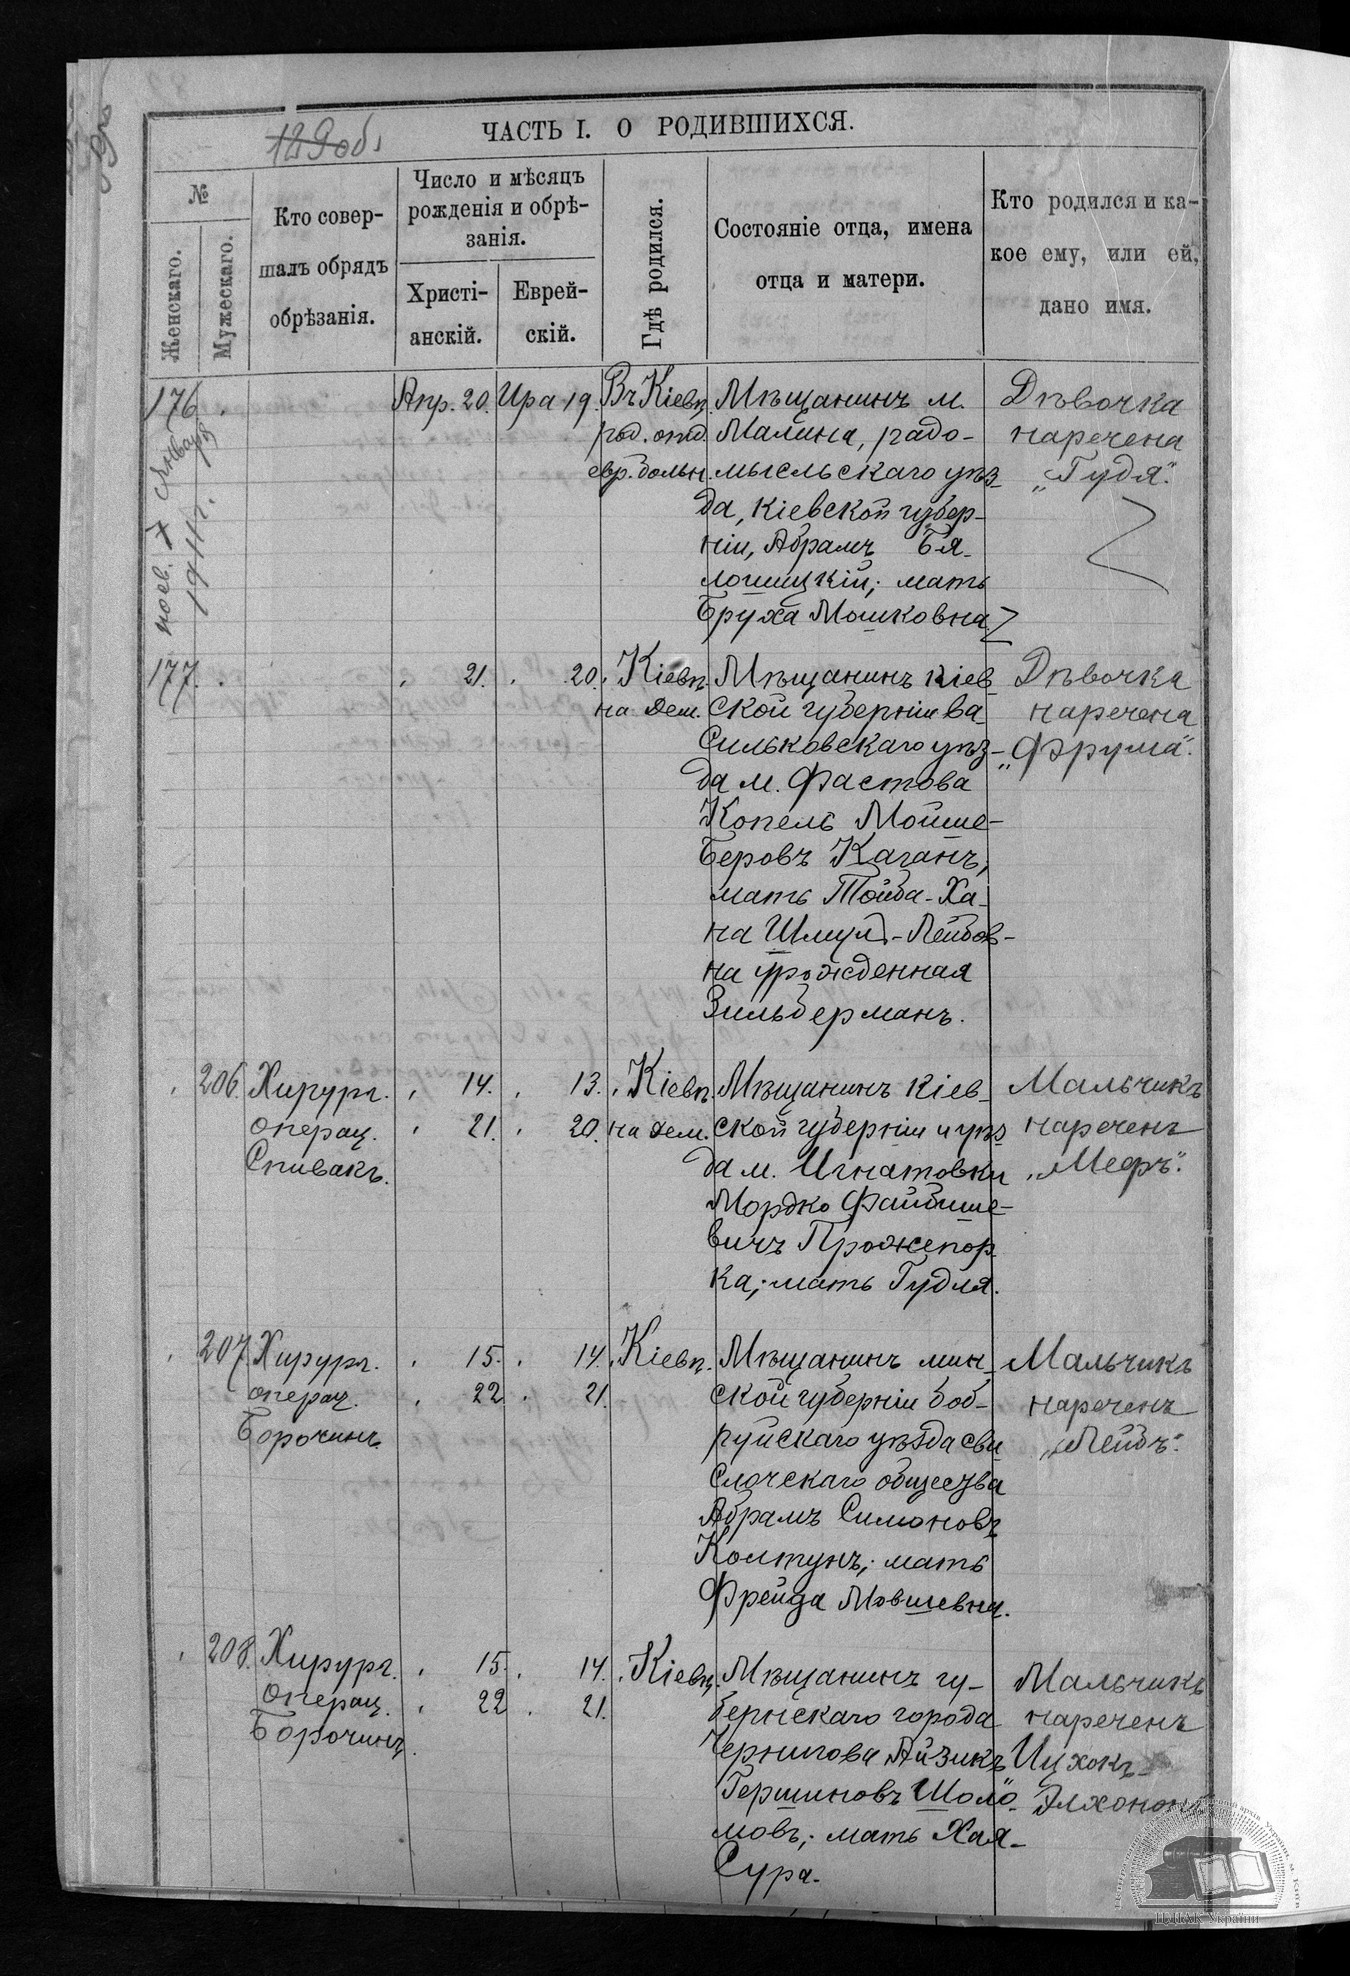 129 об.
ЧАСТЬ I. О РОДИВШИХСЯ.
№
Женскаго.
Мужескаго.
Кто совер-
шалъ обрядъ
обрѣзанія.
Число и мѣсяцъ
рожденія и обрѣ-
занія.
Христі-
анскій.
Еврей-
скій.
Гдѣ родился.
Состояніе отца, имена
отца и матери.
Кто родился и ка-
кое ему, или ей,
дано имя.
176
Апр. 20. Ира 19.
Въ Кіевѣ
род. отд.
евр. больн.
Мѣщанинъ м.
Малина, радо-
мысльскаго уѣз-
да, Кіевской губер-
ніи, Абрамъ Бя-
лошицкій; мать
Бруха Мошковна
Дѣвочка
наречена
„Гудя".
7 Января
1911 г.
177.
21. 20.
Кіевѣ
на Дем.
Мѣщанинъ Кіев-
ской губерніи Ва-
сильковскаго уѣз-
да м. Фастова
Копель Мойше-
Беровъ Каганъ,
мать Тойба-Ха-
на Шмул-Лейбов-
на урожденная
Зильберманъ.
Дѣвочка
наречена
„Фрума".
206.
Хирург.
операц.
Спивакъ.
14. 13.
21. 20.
Кіевѣ
на Дем.
Мѣщанинъ Кіев-
ской губерніи и уѣз-
да м. Игнатовки
Мордко Файбише-
вичъ Прожепор-
ка; мать Гудля.
Мальчикъ
нареченъ
„Мееръ".
207
Хирург.
операц.
Борочинъ
15. 14.
22 21.
Кіевѣ.
Мѣщанинъ мин-
ской губерніи боб-
руйскаго уѣзда сви-
слочскаго общества
Абрамъ Симоновъ
Колтунъ; мать
Фрейда Мовшевна.
Мальчикъ
нареченъ
„Лейбъ".
208.
Хирург.
операц.
Борочинъ.
15. 14.
22 21.
Кіевѣ.
Мѣщанинъ гу-
бернскаго города
Чернигова Айзикъ
Гершиновъ Шоло-
мовъ; мать Хая-
Сура.
Мальчикъ
нареченъ
Ицхокъ-
Элхононъ
ЦДІАК України